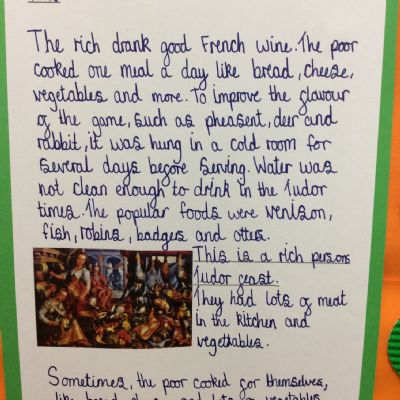 The rich drank good French wine. The poor
cooked one meal a day like bread, cheese,
vegetables and more. To improve the flavour
of the game, such as pheasent, deer and
rabbit, it was hung in a cold room for
several days before serving. Water was
not clean enough to drink in the Tudor
times. The popular foods were venison,
fish, robins, badgers and otters.
This is a rich persons
Tudor feast.
They had lots of meat
in the kitchen and
vegethables.
Sometimes, the poor cooked for themselves,